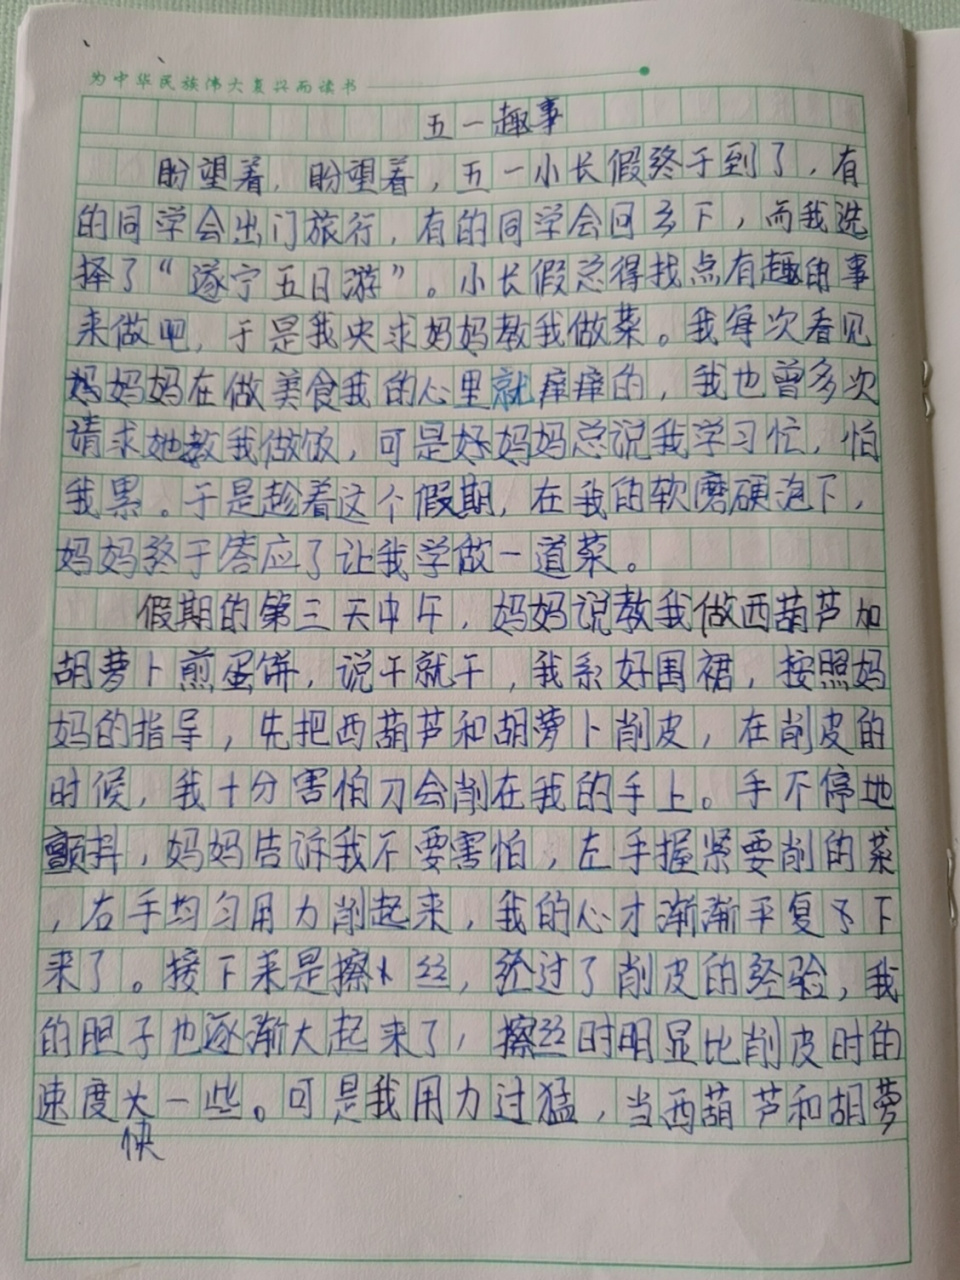 为中华民族伟大复兴而读书
五一趣事
盼望着，盼望着，五一小长假终于到了，有
的同学会出门旅行，有的同学会回乡下，而我选
择了“遂宁五日游”。小长假总得找点有趣的事
来做吧，于是我央求妈妈教我做菜。我每次看见
妈妈妈在做美食我的心里就痒痒的，我也曾多次
请求她教我做饭，可是妈妈总说我学习忙，怕
我累。于是趁着这个假期，在我的软磨硬泡下，
妈妈终于答应了让我学做一道菜。
假期的第三天中午，妈妈说教我做西葫芦加
胡萝卜煎蛋饼，说干就干，我系好围裙，按照妈
妈的指导，先把西葫芦和胡萝卜削皮，在削皮的
时候，我十分害怕刀会削在我的手上。手不停地
颤抖，妈妈告诉我不要害怕，左手握紧要削的菜
，右手均匀用力削起来，我的心才渐渐平复下
来了。接下来是擦丝，经过了削皮的经验，我
的胆子也逐渐大起来了，擦丝时明显比削皮时的
速度一些。可是我用力过猛，当西葫芦和胡萝
快